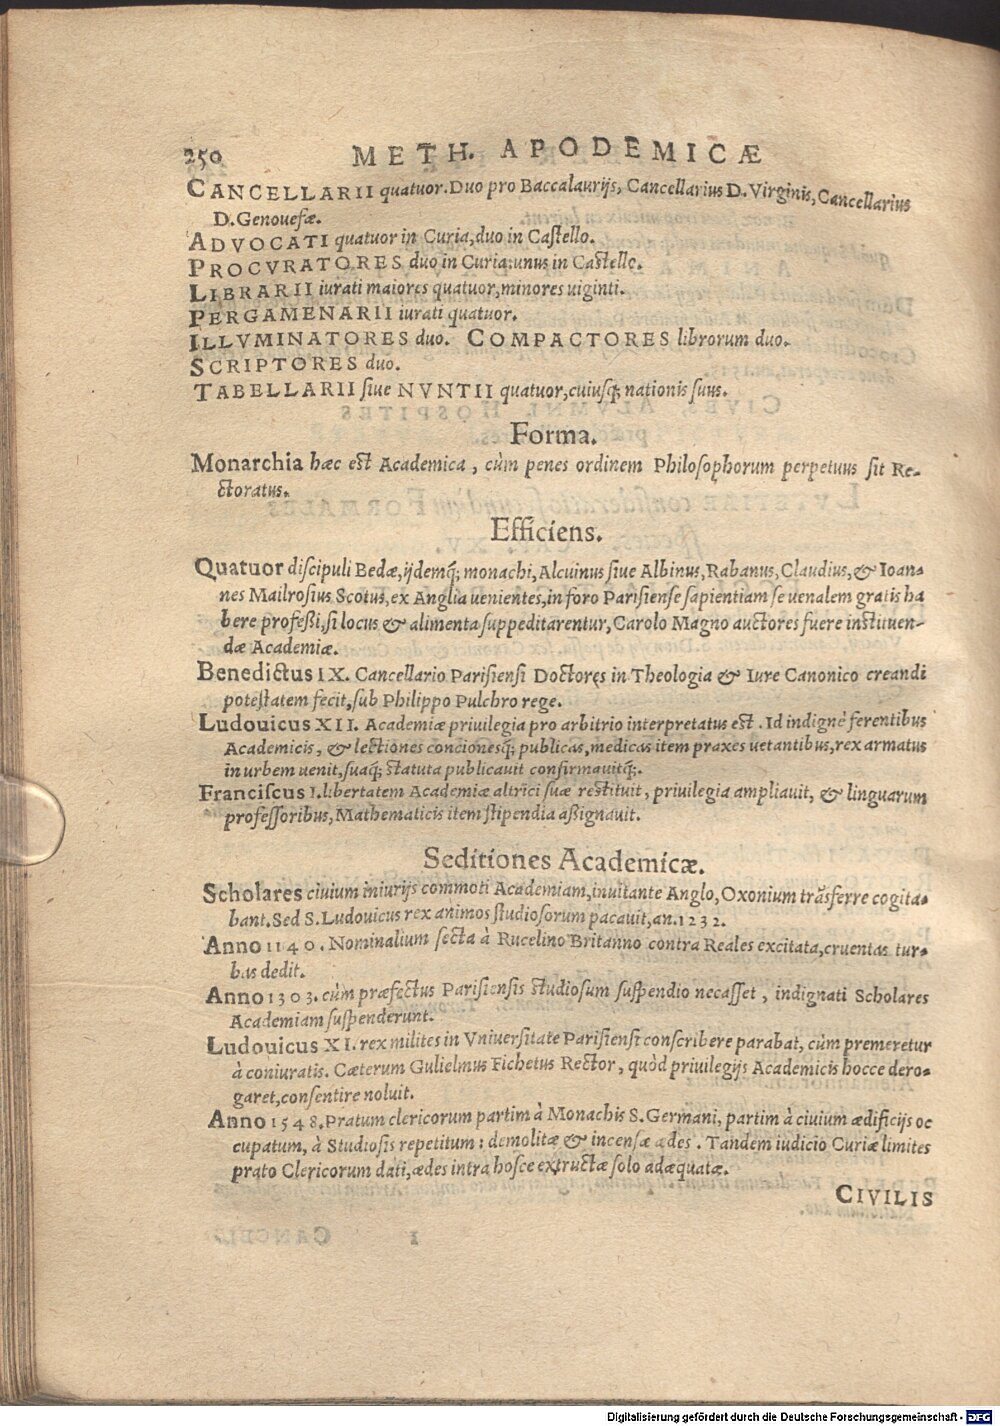 250 METH. APODEMICÆ
CANCELLARII quatuor. Duo pro Baccalaurijs, Cancellarius D. Virginis, Cancellarius
D. Genouefæ.
ADVOCATI quatuor in Curia, duo in Castello.
PROCVRATORES duo in Curia: unus in Castello.
LIBRARII iurati maiores quatuor, minores uiginti.
PERGAMENARII iurati quatuor.
ILLVMINATORES duo. COMPACTORES librorum duo.
SCRIPTORES duo.
TABELLARII siue NVNTII quatuor, cuiusq; nationis suus.
Forma.
Monarchia hæc est Academica, cùm penes ordinem Philosophorum perpetuus sit Re-
ctoratus.
Efficiens.
Quatuor discipuli Bedæ, ijdemq́; monachi, Alcuinus siue Albinus, Rabanus, Claudius, & Ioan-
nes Mailrosius Scotus, ex Anglia uenientes, in foro Parisiense sapientiam se uenalem gratis ha
bere professi, si locus & alimenta suppeditarentur, Carolo Magno auctores fuere instituen-
dæ Academiæ.
Benedictus IX. Cancellario Parisiensi Doctores in Theologia & Iure Canonico creandi
potestatem fecit, sub Philippo Pulchro rege.
Ludouicus XII. Academiæ priuilegia pro arbitrio interpretatus est. Id indignè ferentibus
Academicis, & lectiones concionesq́; publicas, medicas item praxes uetantibus, rex armatus
in urbem uenit, suaq́; statuta publicauit confirmauitq́;.
Franciscus I. libertatem Academiæ altrici suæ restituit, priuilegia ampliauit, & linguarum
professoribus, Mathematicis item stipendia assignauit.
Seditiones Academicæ.
Scholares ciuium iniurijs commoti Academiam, inuitante Anglo, Oxonium trãsferre cogita-
bant. Sed S. Ludouicus rex animos studiosorum pacauit, an. 1232.
Anno 1140. Nominalium secta à Rucelino Britanno contra Reales excitata, cruentas tur-
bas dedit.
Anno 1303. cùm præfectus Parisiensis studiosum suspendio necasset, indignati Scholares
Academiam suspenderunt.
Ludouicus XI. rex milites in Vniuersitate Parisiensi conscribere parabat, cùm premeretur
à coniuratis. Cæterum Gulielmus Fichetus Rector, quòd priuilegijs Academicis hocce dero-
garet, consentire noluit.
Anno 1548. Pratum clericorum partim à Monachis S. Germani, partim à ciuium ædificijs oc
cupatum, à Studiosis repetitum: demolitæ & incensæ ædes. Tandem iudicio Curiæ limites
prato Clericorum dati, ædes intra hosce extructæ solo adæquatæ.
CIVILIS
Digitalisierung gefördert durch die Deutsche Forschungsgemeinschaft - DFG